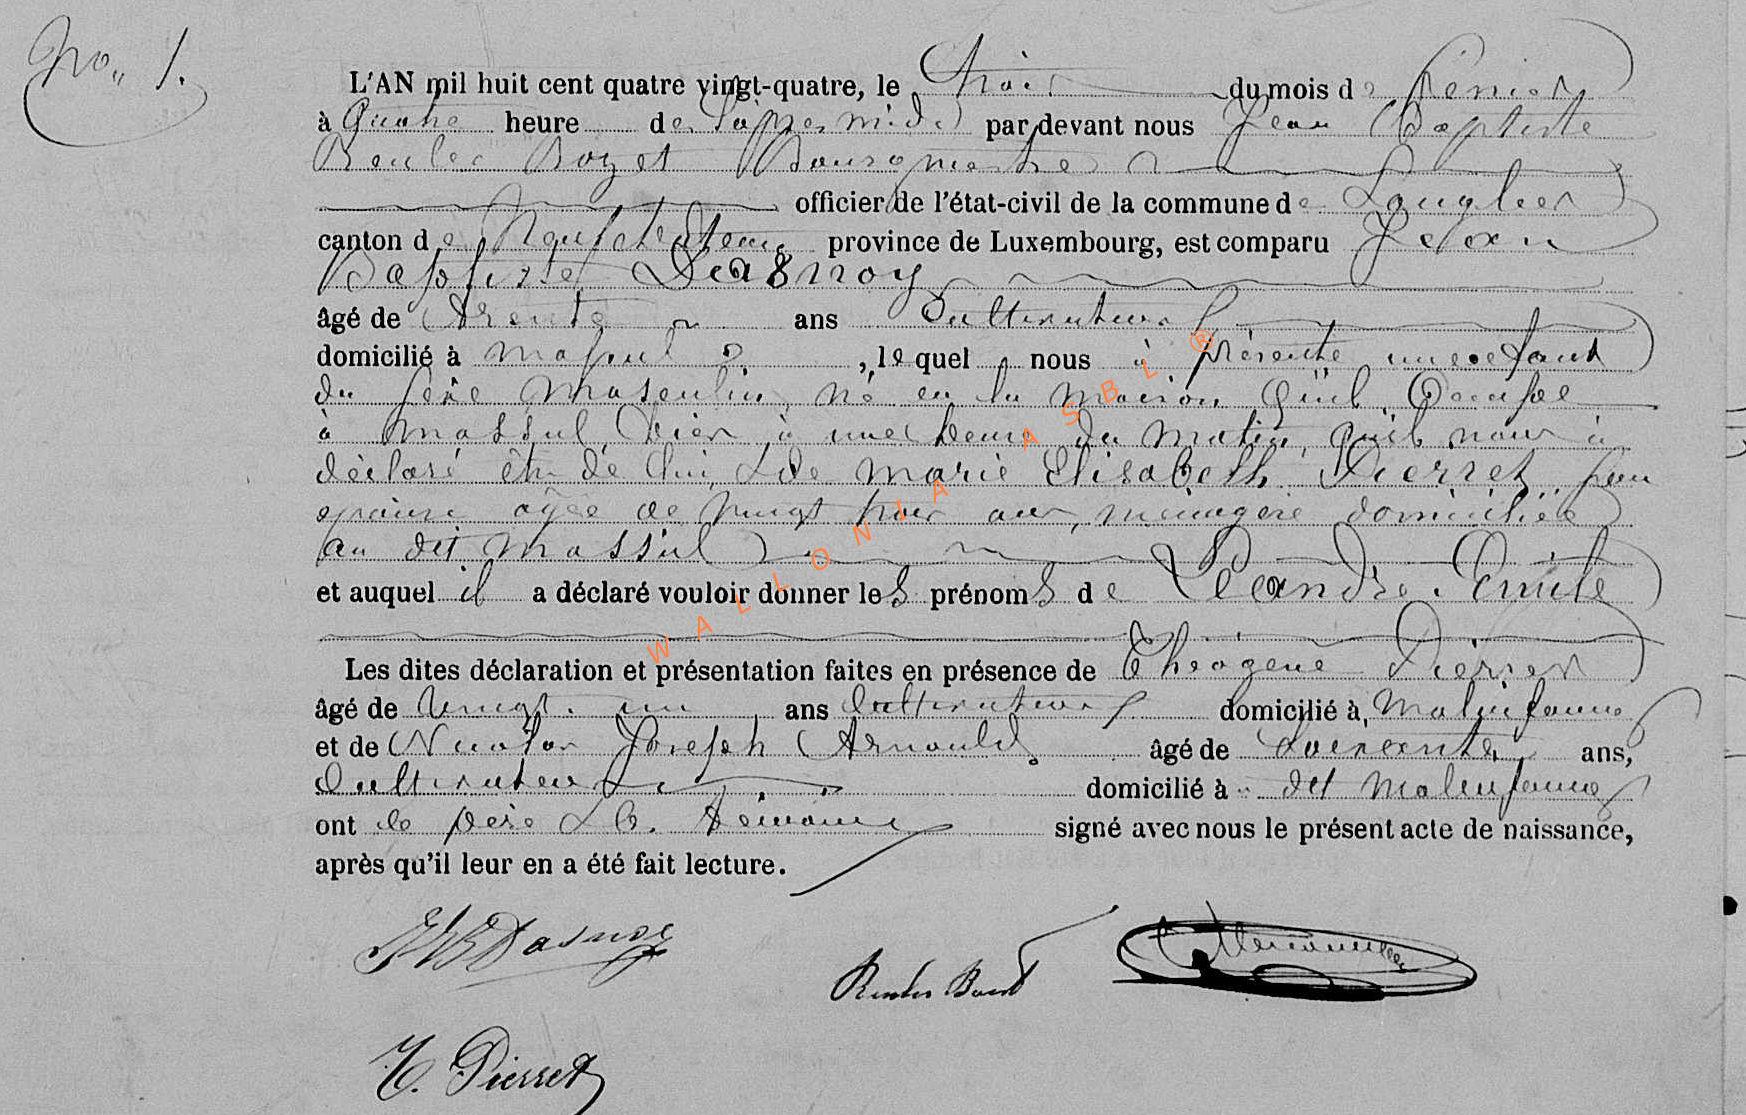 No. 1.
L'AN mil huit cent quatre vingt-quatre, le trois du mois de Février
à quatre heure de l'après midi par devant nous Jean Baptiste
Reuler Bourgmestre
officier de l'état-civil de la commune de Longlier
canton de Neufchateau province de Luxembourg, est comparu Jean
Baptiste Dasnoy
âgé de trente ans Cultivateur
domicilié à massul, lequel nous à présenté une enfant
du sexe masculin, né en la maison qu'il occupe
à massul, hier à une heure du matin, qu'il nous à
déclaré être de lui, & de marie Elisabeth Pierret, son
épouse agée de vingt trois ans, ménagère domiciliée
au dit massul
et auquel il a déclaré vouloir donner les prénoms de Léandre. Emile
Les dites déclaration et présentation faites en présence de Théogène Pierret
âgé de vingt. un ans Cultivateur domicilié à, Molinfaing
et de Nicolas Joseph Arnould âgé de soixante, ans,
Cultivateur domicilié à dit Molinfaing
ont le père & le. témoins signé avec nous le présent acte de naissance,
après qu'il leur en a été fait lecture.
JB Dasnoy
T. Pierret
WALLONIA ASBL ®